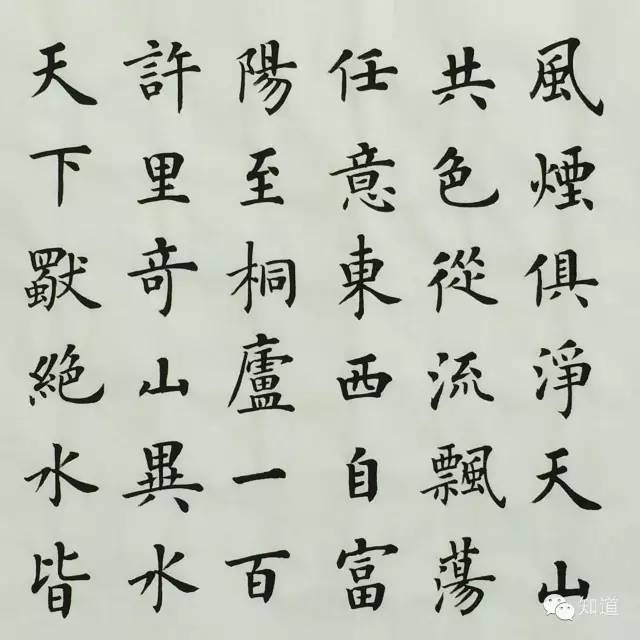 風煙俱淨天山
共色從流飄蕩
任意東西自富
陽至桐廬一百
許里竒山異水
天下獨絶水皆
知道